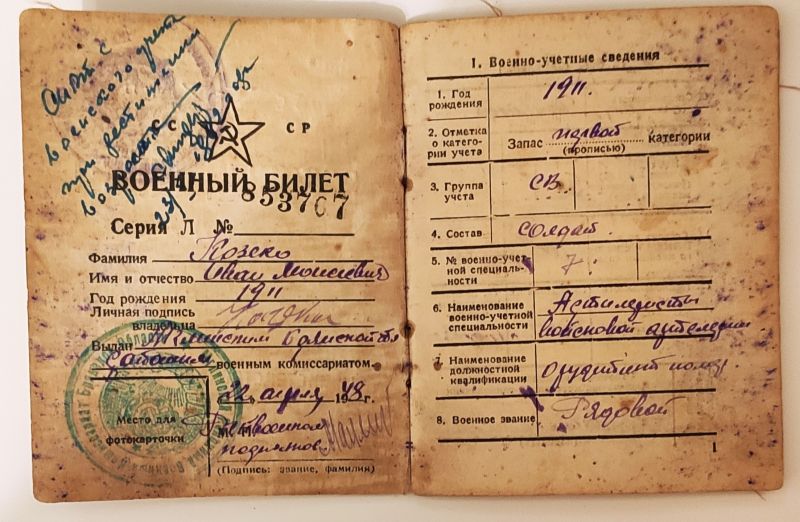 Снят с
воинского учета
при достижении
возраста
СССР
ВОЕННЫЙ БИЛЕТ
Серия Л № 853767
Фамилия
Имя и отчество Иван Моисеевич
Год рождения 1911
Личная подпись
владельца
Выдан Брянской обл
военным комиссариатом.
22 апреля 1948
Место для
фотокарточки
М.
(Подпись: звание, фамилия)
1. Военно-учетные сведения
1. Год
рождения 1911.
2. Отметка
о катего-
рии учета Запас первой категории
(прописью)
3. Группа
учета СВ
4. Состав солдат.
5. № военно-учет-
ной специаль-
ности 7
6. Наименование
военно-учетной
специальности Артиллеристы
войсковой артиллерии
7. Наименование
должностной
квалификации орудийный номер
8. Военное звание Рядовой
1